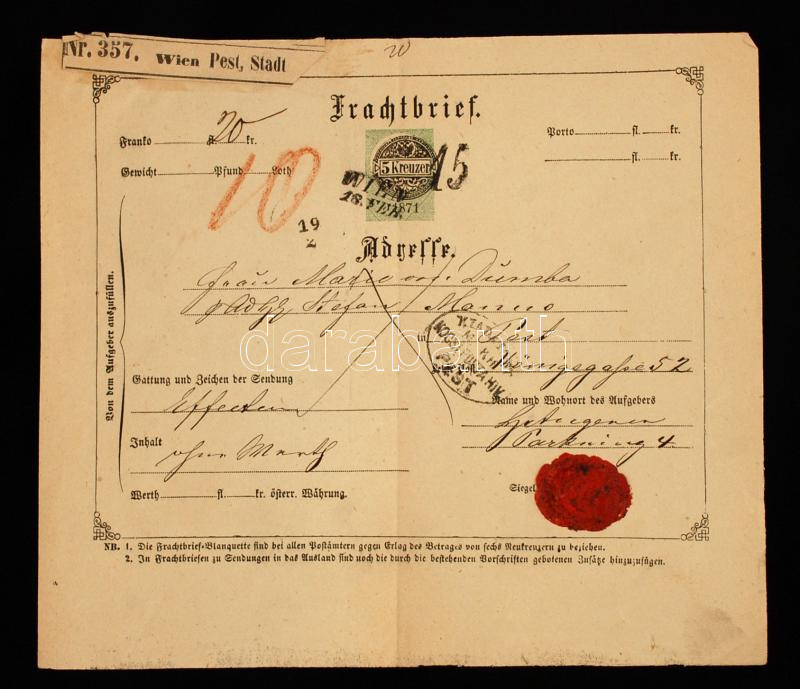 Nr. 357. Wien Pest, Stadt
Frachtbrief.
Franko fl. 20 kr.
Porto fl. kr.
fl. kr.
Gewicht Pfund Loth
10
5 Kreuzer
1871
15
WIEN
18. FEB.
19
2
Adresse.
Frau Marie von Dumba
Stefan Manno
in Pest
Königsgasse 52
PEST
Von dem Aufgeber auszufüllen.
Gattung und Zeichen der Sendung
Effecten
Name und Wohnort des Aufgebers
Parkring 4.
Inhalt
ohne Werth
Werth fl. kr. österr. Währung.
Siegel
NB. 1. Die Frachtbrief-Blanquette sind bei allen Postämtern gegen Erlag des Betrages von sechs Neukreuzern zu beziehen.
2. In Frachtbriefen zu Sendungen in das Ausland sind noch die durch die bestehenden Vorschriften gebotenen Zusätze hinzuzufügen.
darabanth